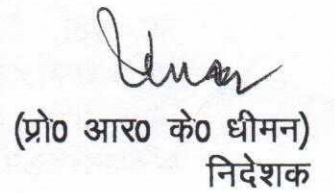 (प्रो0 आर0 के0 धीमन)
निदेशक